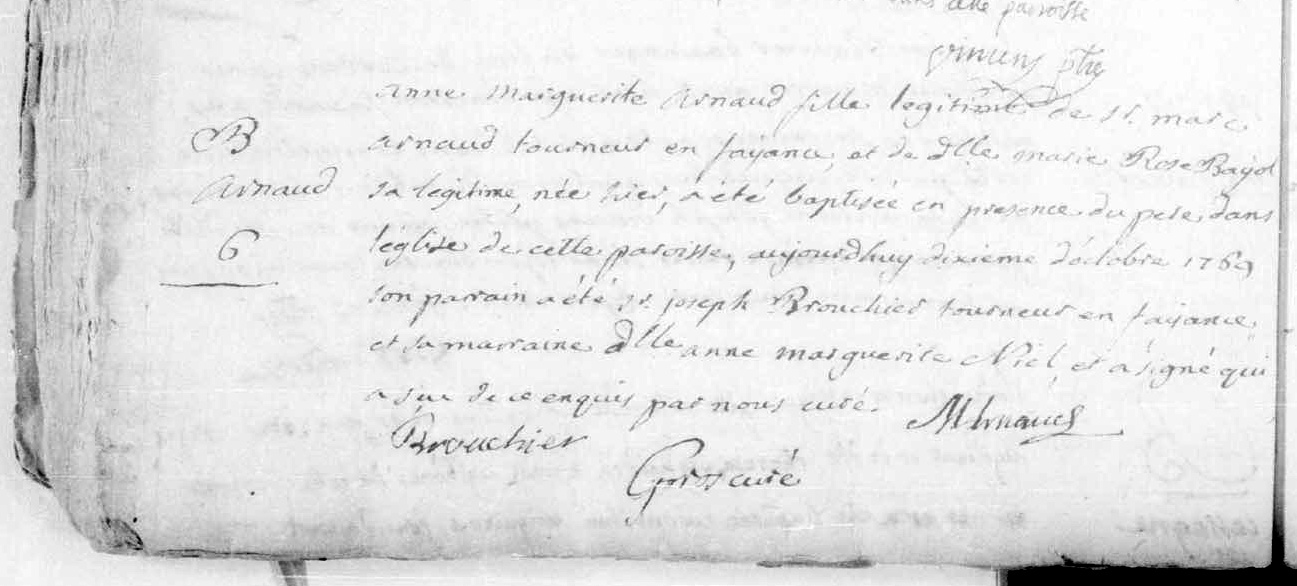 dans cette paroisse
vincens ptre
anne marguerite arnaud fille legitime de sr. marc
B
arnaud tourneur en fayance et de dlle marie Rose Bayol
arnaud
sa legitime, née hier, a été baptisée en presence du pere dans
6
leglise de cette paroisse, aujourdhuy dixieme d'octobre 1769
son parrain a été sr. joseph Brouchier tourneur en faiance
et sa marraine dlle anne marguerite Niel et a signé qui
a sçu de ce enquis par nous curé.
MArnaud
Brouchier
Gros curé